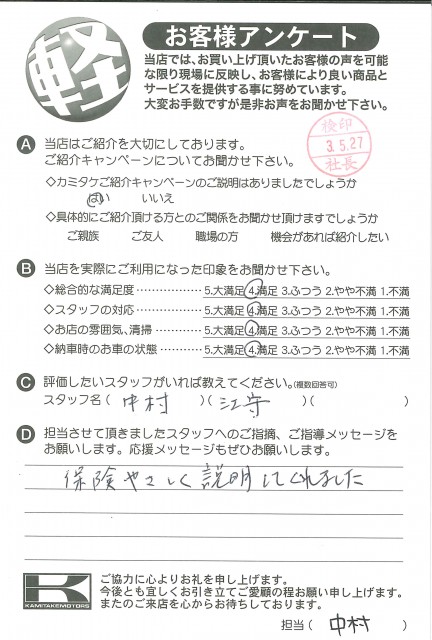 軽
お客様アンケート
当店では、お買い上げ頂いたお客様の声を可能
な限り現場に反映し、お客様により良い商品と
サービスを提供する事に努めています。
大変お手数ですが是非お声をお聞かせ下さい。
検印
3.5.27
社長
A 当店はご紹介を大切にしております。
ご紹介キャンペーンについてお聞かせ下さい。
◇カミタケご紹介キャンペーンのご説明はありましたでしょうか
はい いいえ
◇具体的にご紹介頂ける方とのご関係をお聞かせ頂けますでしょうか
ご親族 ご友人 職場の方 機会があれば紹介したい
B 当店を実際にご利用になった印象をお聞かせ下さい。
◇総合的な満足度 ………………… 5.大満足 4.満足 3.ふつう 2.やや不満 1.不満
◇スタッフの対応 ………………… 5.大満足 4.満足 3.ふつう 2.やや不満 1.不満
◇お店の雰囲気、清掃 …………… 5.大満足 4.満足 3.ふつう 2.やや不満 1.不満
◇納車時のお車の状態 …………… 5.大満足 4.満足 3.ふつう 2.やや不満 1.不満
C 評価したいスタッフがいれば教えてください。(複数回答可)
スタッフ名( 中村 )( 江守 )( )
D 担当させて頂きましたスタッフへのご指摘、ご指導メッセージを
お願いします。応援メッセージもぜひお願いします。
保険やさしく説明してくれました
K
KAMITAKEMOTORS
ご協力に心よりお礼を申し上げます。
今後とも宜しくお引き立てご愛顧の程お願い申し上げます。
またのご来店を心からお待ちしております。
担当( 中村 )